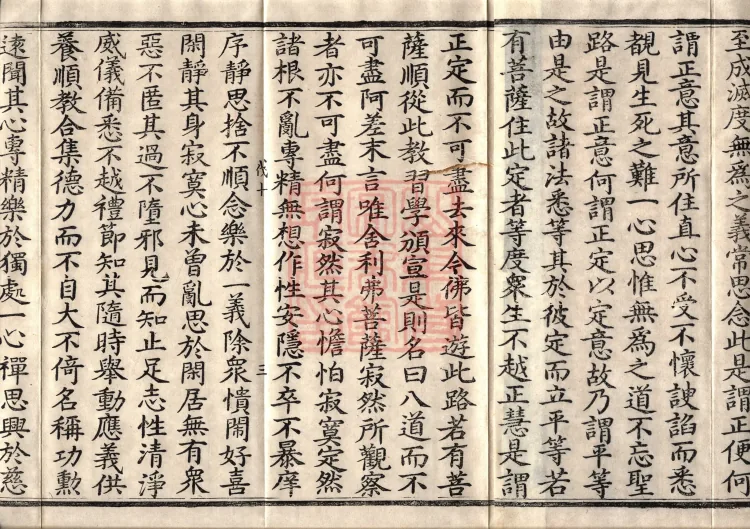 至成滅度無爲之義常思念此是謂正便何
謂正意其意所住直心不受不懷諛諂而悉
覩見生死之難一心思惟無爲之道不忘聖
路是謂正意何謂正定以定意故乃謂平等
由是之故諸法悉等其於彼定而立平等若
有菩薩住此定者等度衆生不越正慧是謂
正定而不可盡去來今佛皆遊此路若有菩
薩順從此教習學頒宣是則名曰八道而不
可盡阿差末言唯舍利弗菩薩寂然所觀察
者亦不可盡何謂寂然其心憺怕寂寞定然
諸根不亂專精無想作性安隱不卒不暴庠
伐十 三
序靜思捨不順念樂於一義除衆憒閙好喜
閑靜其身寂寞心未曽亂思於閑居無有衆
惡不匿其過不墮邪見而知止足志性清淨
威儀備悉不越禮節知其隨時舉動應義供
養順教合集德力而不自大不倚名稱功勲
遠聞其心專精樂於獨處一心禪思興於慈